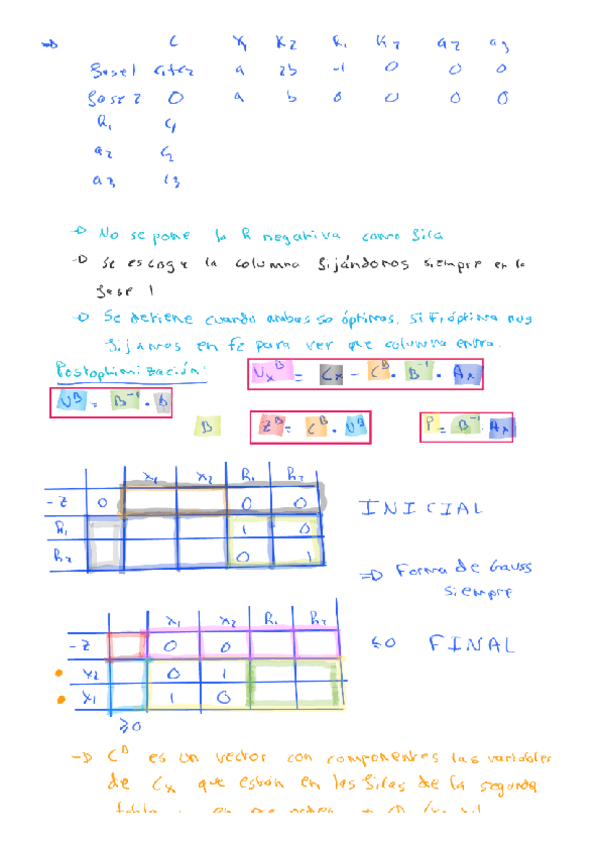 C X₁ X₂ R₁ R₂ a₂ a₃
Fase 1 a 2b -1 0 0 0
Fase 2 0 a b 0 0 0 0
R₁ C₁
a₂ C₂
a₃ C₃
→ No se pone la R negativa como fila
→ Se escoge la columna fijándonos siempre en la
fase 1
→ Se detiene cuando ambas so óptimas, si F₁ óptima nos
fijamos en F₂ para ver que columna entra.
Postoptimización:
V_x^B = C_x - C^B · B⁻¹ · A_x
U^B = B⁻¹ · b
B
Z^B = C^B · U^B
P = B⁻¹ · A_x
X₁ X₂ R₁ R₂
-Z 0 0 0
R₁ 1 0
R₂ 0 1
INICIAL
⇒ Forma de Gauss
siempre
X₁ X₂ R₁ R₂
-Z 0 0
X₂ 0 1
X₁ 1 0
≤0 FINAL
≥0
→ C^B es un vector con componentes las variables
de C_x que están en las filas de la segunda